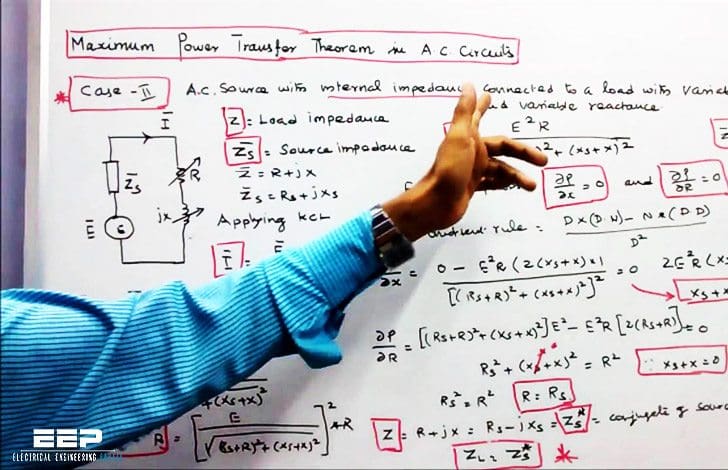 Maximum Power Transfer Theorem in A.C. Circuits
* Case - II A.C. Source with internal impedance connected to a load with Variab
nd variable reactance
Ī
Z = Load impedance
Z̄s = Source impedance
Z̄ = R + jx
Z̄s = Rs + jxs
Applying KCL
Z̄s
R
jx
Ē
G
Ī = E
E²R
)² + (xs+x)²
∂P/∂x = 0 and ∂P/∂R = 0
rule = D×(DN) - N×(DD) / D²
∂x = 0 - E²R (2(xs+x)×1) / [(Rs+R)² + (xs+x)²]² = 0 2E²R (xs
xs+x
∂P/∂R = [(Rs+R)² + (xs+x)²]E² - E²R[2(Rs+R)] = 0
Rs² + (xs+x)² = R² ∵ xs+x = 0
Rs² = R² R = Rs
+(xs+x)²
R = [E / √(Rs+R)² + (xs+x)²]² * R
Z = R + jx = Rs - jxs = Z̄s* = conjugate of sourc
ZL = Zs* *
EEP
ELECTRICAL ENGINEERING